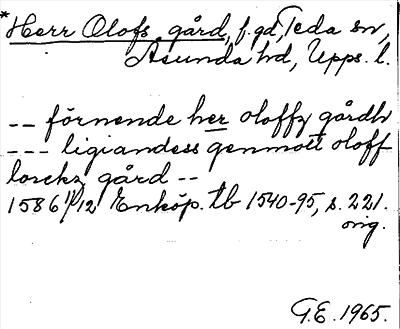 *Herr Olofs gård, f. gd, Teda sn,
Åsunda hd, Upps. l.
-- förnende her oloffz gårdh
--- ligiandess genmott oloff
lorckz gård --
1586 11/12 Enköp. tb 1540-95, s. 221.
orig.
G.E. 1965.